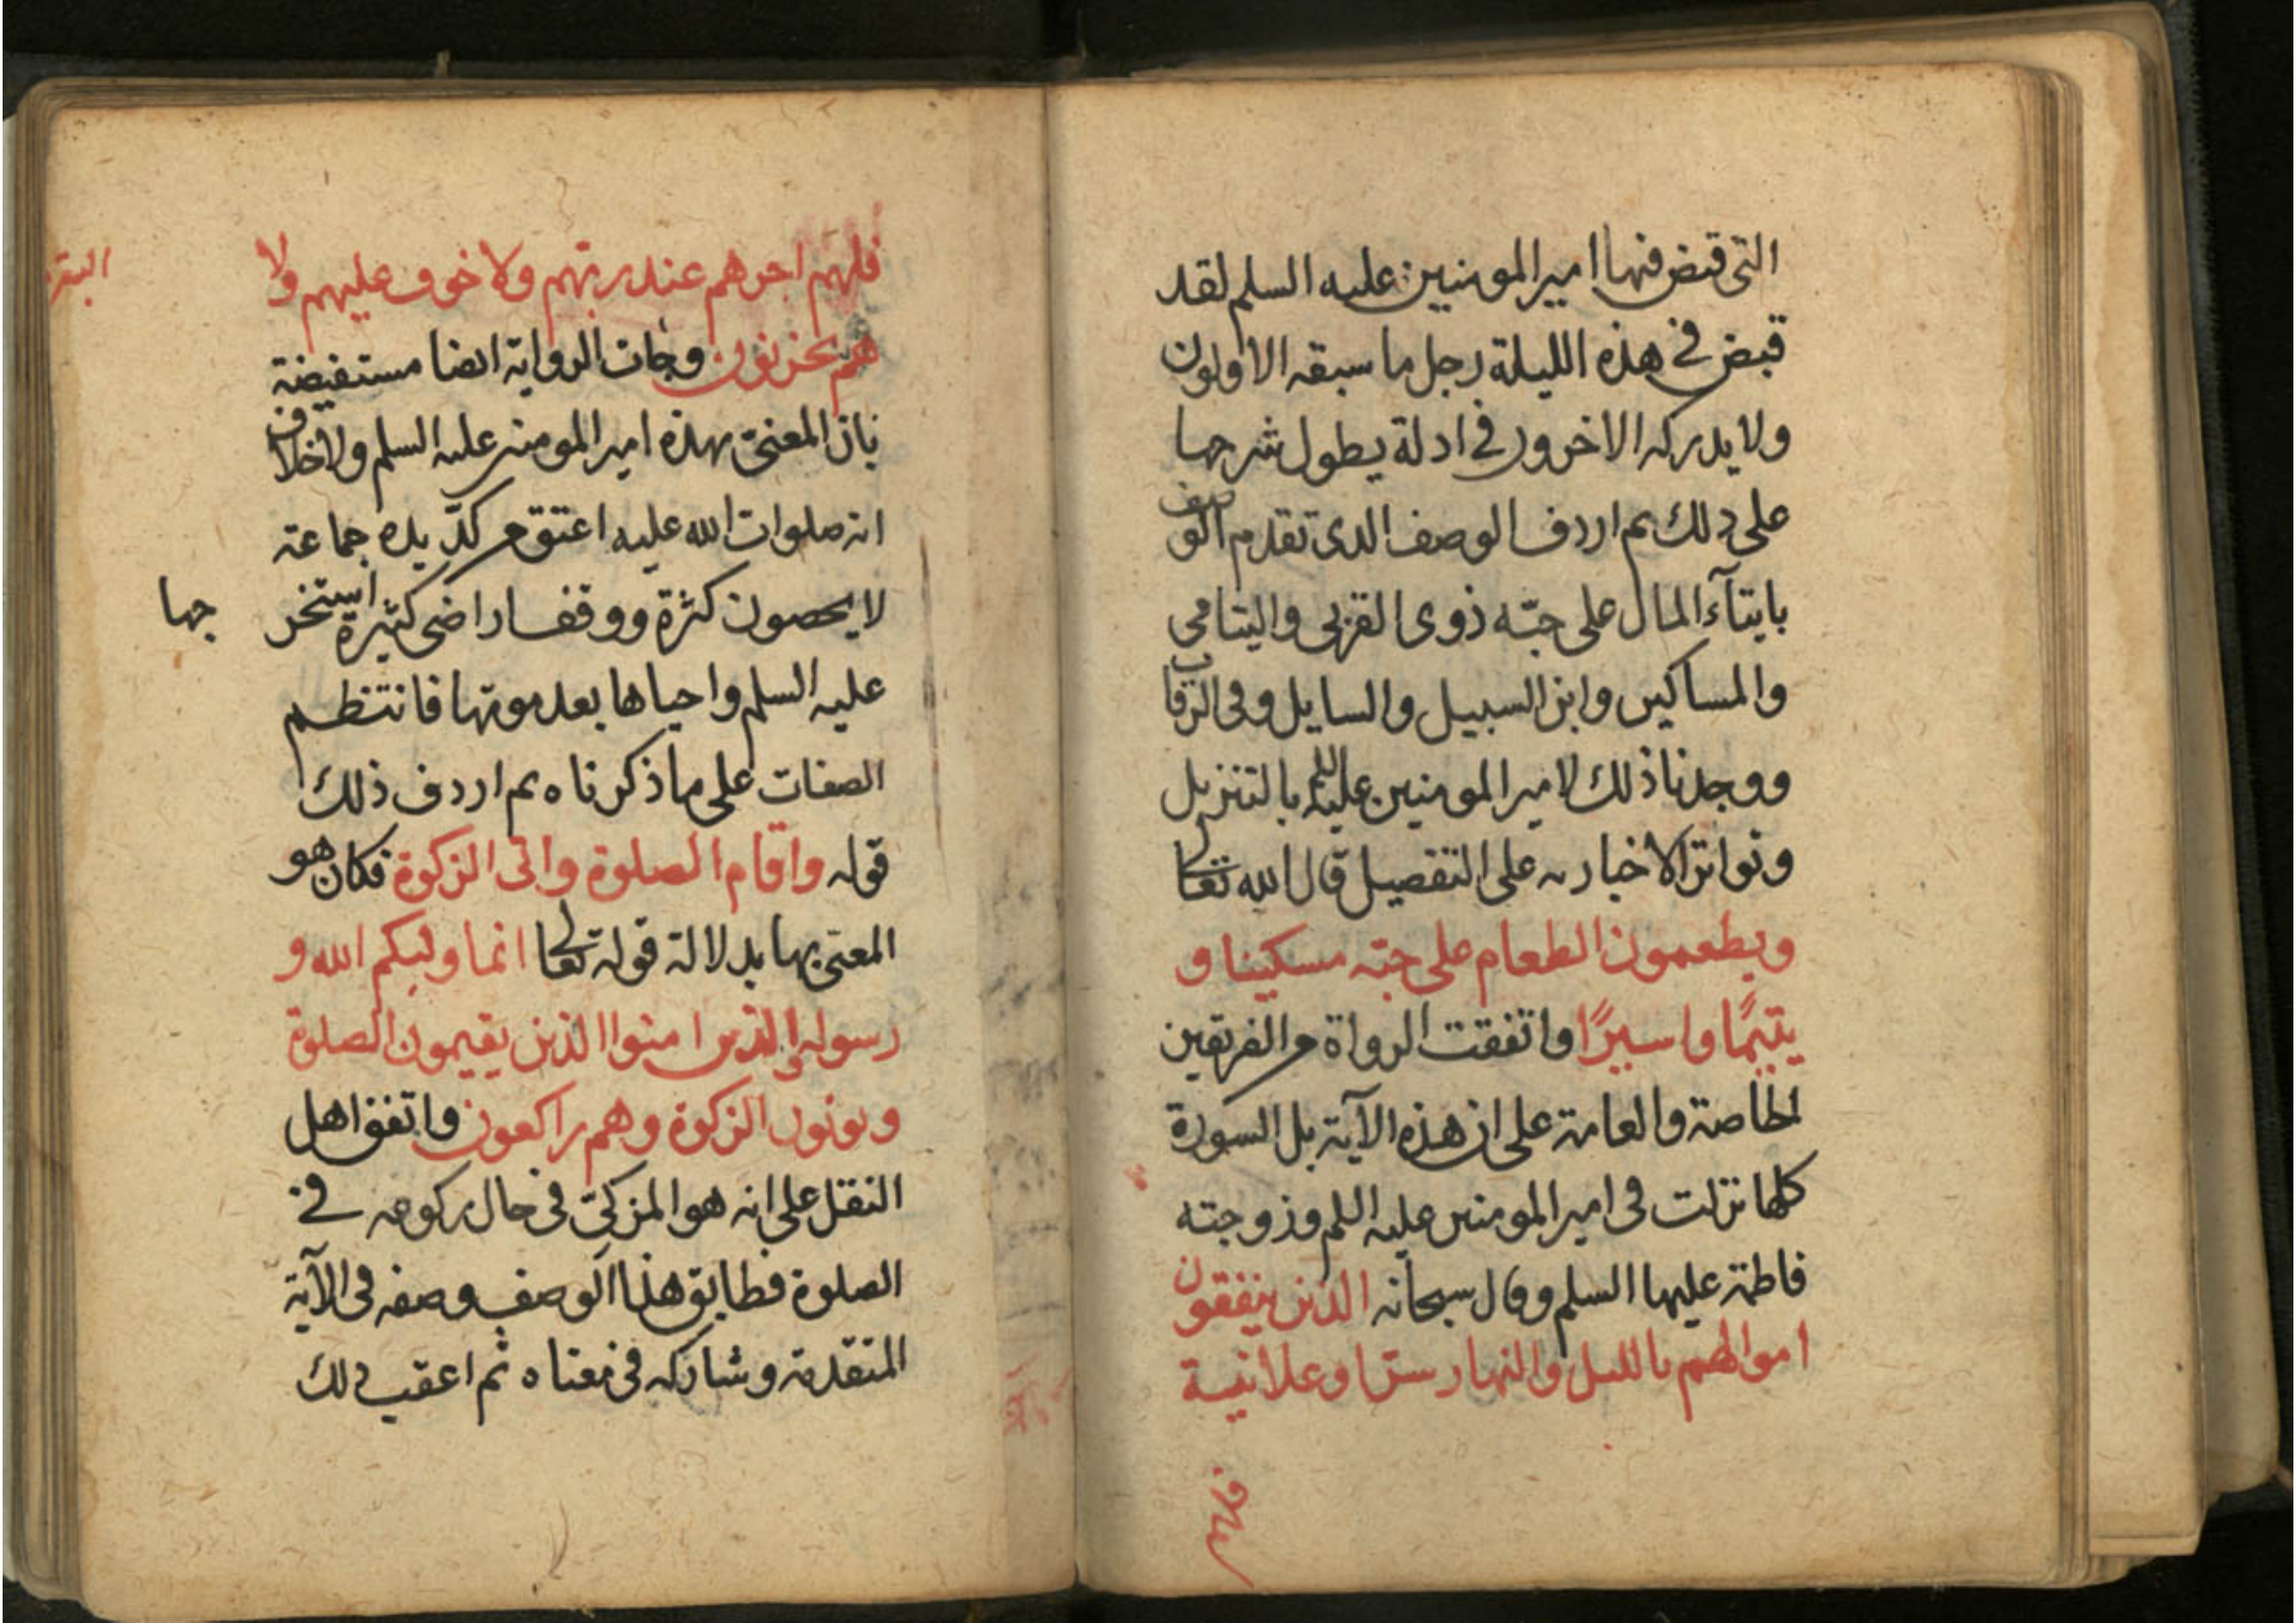 التى قبض فيها امير المومنين عليه السلم لقد
قبض فى هذه الليلة رجل ما سبقه الاولون
ولا يدركه الاخرون فى ادلة يطول شرحها
على ذلك ثم اردف الوصف الذى تقدم الوصف
بايتآء المال على حبّه ذوى القربى واليتامى
والمساكين وابن السبيل والسايل وفى الرقاب
ووجدنا ذلك لامير المومنين عليه السلم بالتنزيل
وتواتر الاخبار به على التفصيل قال الله تعالى
ويطعمون الطعام على حبّه مسكينا و
يتيمًا واسيرًا واتفقت الرواة من الفريقين
الخاصة والعامة على ان هذه الآية بل السورة
كلها نزلت فى امير المومنين عليه السلم وزوجته
فاطمة عليها السلم وقال سبحانه الذين ينفقون
اموالهم بالليل والنهار سرّا وعلانية
فلهم
فلهم اجرهم عند ربّهم ولا خوف عليهم ولا
هم يحزنون وجات الرواية ايضا مستفيضة
بان المعنىّ بهذه امير المومنين عليه السلم ولا خلاف
انه صلوات الله عليه اعتق من كدّ يده جماعة
لا يحصون كثرة ووقف اراضى كثيرة استخر
جها
عليه السلم واحياها بعد موتها فانتظم
الصفات على ما ذكرناه ثم اردف ذلك
قوله واقام الصلوة واتى الزكوة فكان هو
المعنى بها بدلالة قوله تعالى انما وليكم الله و
رسوله والذين امنوا الذين يقيمون الصلوة
ويوتون الزكوة وهم راكعون واتفق اهل
النقل على انه هو المزكىّ فى حال ركوعه فى
الصلوة فطابق هذا الوصف وصفه فى الآية
المتقدمة وشاركه فى معناه ثم اعقب ذلك